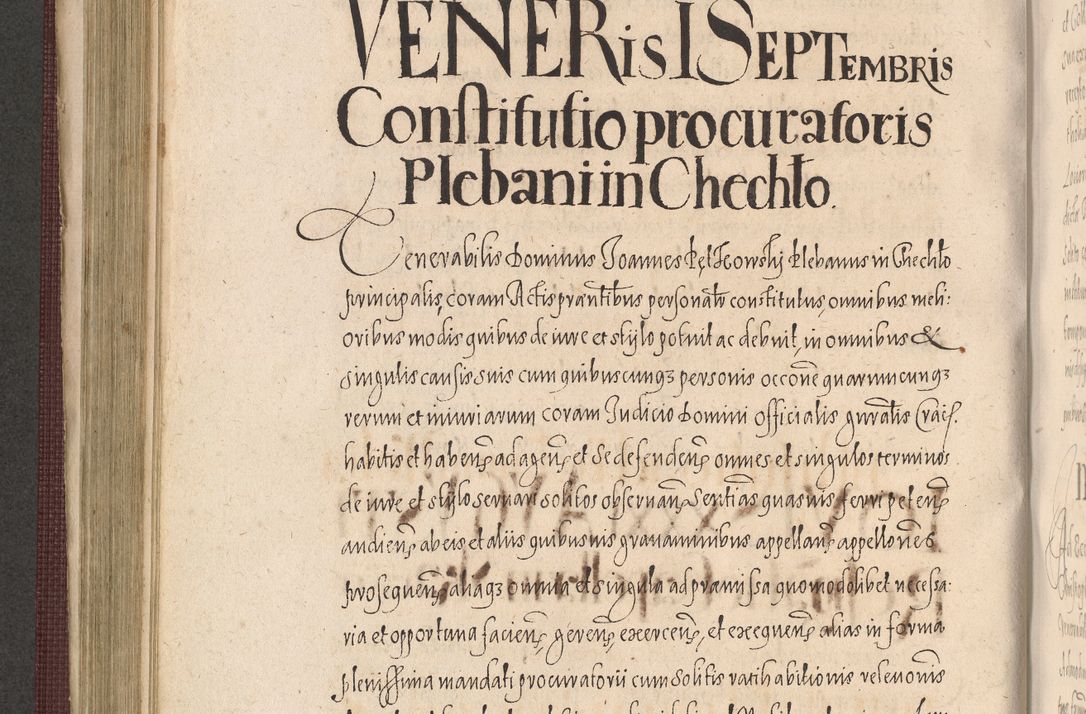 VENERis I SEPTEMBRis
Constitutio procuratoris
Plebani in Chechło.
Venerabilis Dominus Joannes Pełkowskij Plebanus in Chechło
principalis, coram Actis prãntibus personalr constitutus, omnibus meli:
oribus modis quibus de iure et stijlo potuit ac debuit, in omnibus &
singulis causis suis cum quibuscunqȝ personis occõne quarumcunqȝ
rerum et iniuriarum coram Judicio Domini Officialis gnralis Crac.
habitis et habeñ, ad ageñ, et se defendeñ, omnes et singulos terminos
de iure et stijlo servari solitos observañ, Sentias quasvis ferri peteñ,
audieñ, ab eis et aliis quibusvis gravaminibus appellañ, appellones
prosequeñ, aliaqȝ omnia et singula ad præmissa quomodolibet necessa:
ria et opportuna facieñ, gereñ, exerceñ, et exequeñ, alias in forma
plenissima mandati procuratorii cum solitis ratihabitionis relevonis